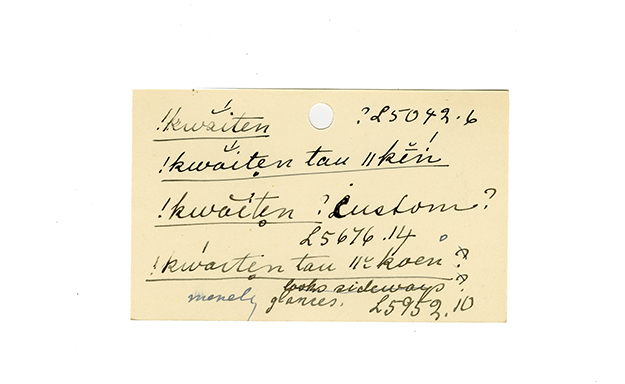 !kwăíten ?L5042.6
!kwăitẹn tau ǁkĕń
!kwăitẹn ? Custom?
L5676.14
!kwáitẹn tau ǁkoẹn?
looks sideways?
merely glances. L5952.10